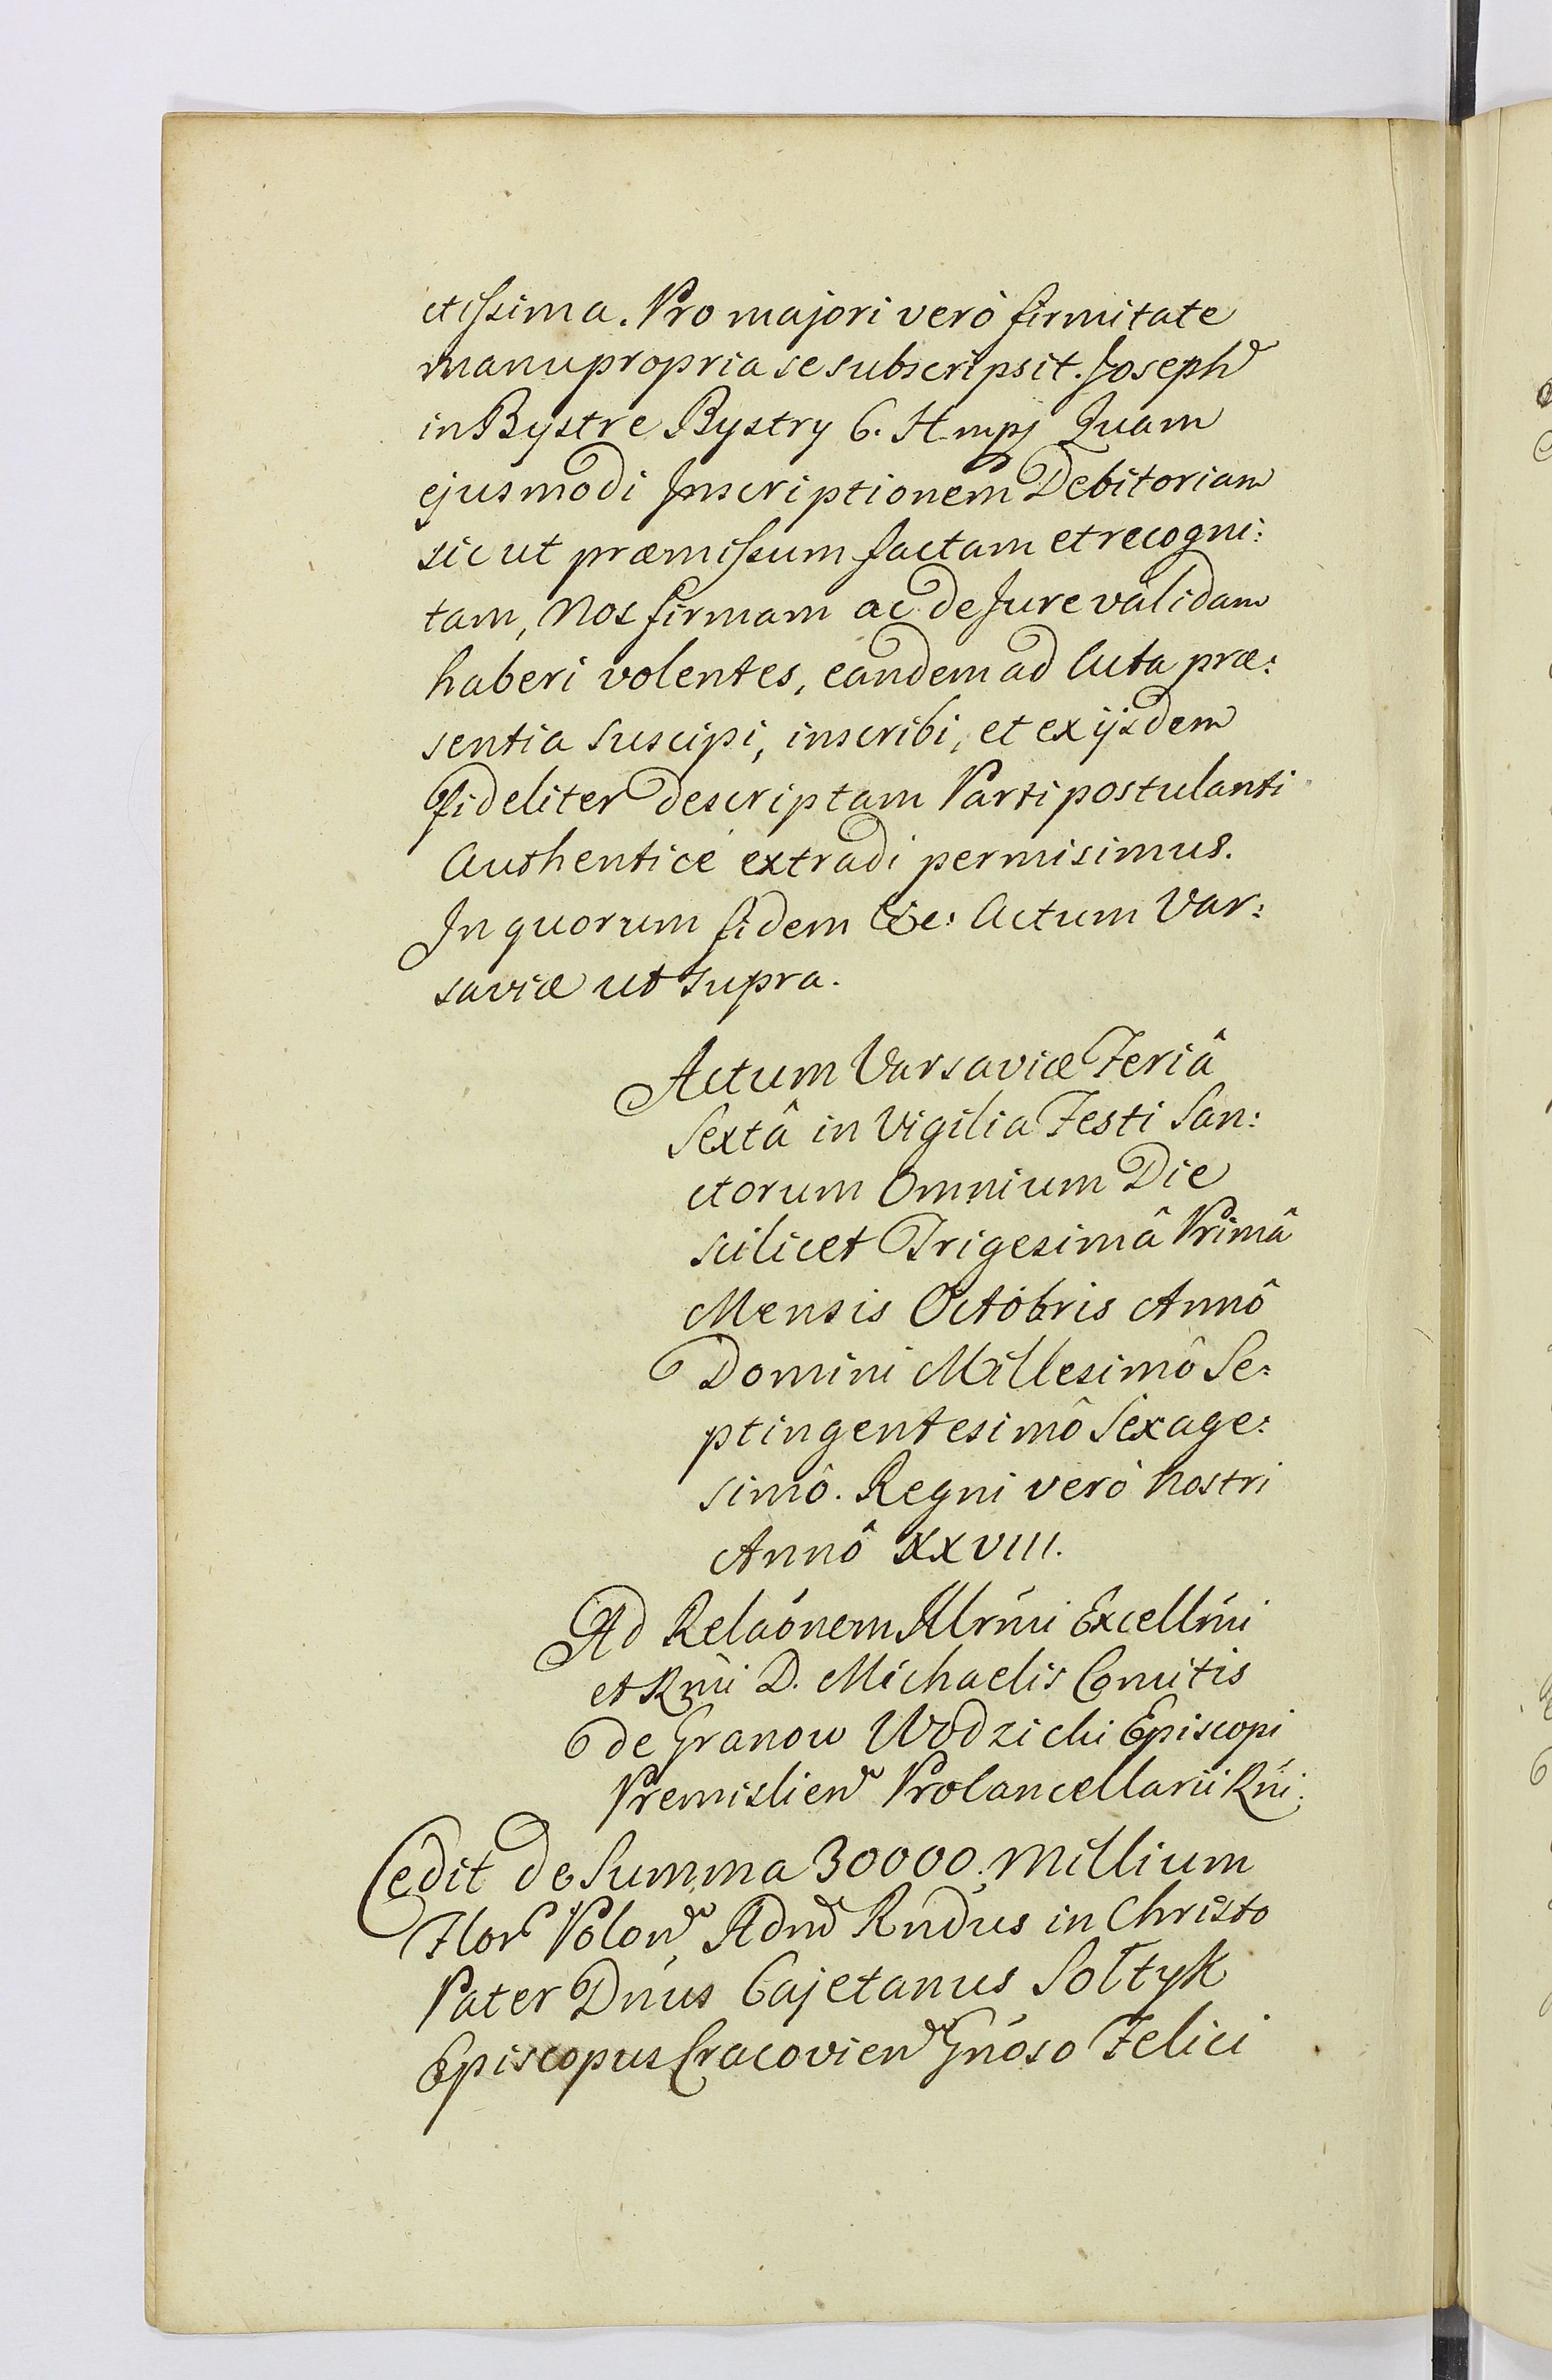 ctissima. Pro majori verò firmitate
manu propria se subscripsit. Joseph
in Bystre Bystry C. H. mpj Quam
ejusmodi Inscriptionem Debitoriam
sic ut præmissum factam et recogni:
tam, Nos firmam ac de Jure validam
haberi volentes, eandem ad Acta præ:
sentia suscipi, inscribi, et ex ijsdem
fideliter descriptam Parti postulanti
Authenticè extradi permisimus.
In quorum fidem &c: Actum Var:
saviæ ut supra.
Actum Varsaviæ Feriâ
Sextâ in Vigilia Festi San:
ctorum Omnium Die
scilicet Trigesimâ Primâ
Mensis Octobris Annô
Domini Millesimô Se:
ptingentesimô Sexage:
simô. Regni verò Nostri
Annô XXVIII.
Ad Relaónem Illrmi Excellmi
et Rmi D. Michaelis Comitis
de Granow Wodzicki Episcopi
Premislien Procancellarii Rni.
Cedit de Summa 30000. Millium
Flor Polon Adm Rndus in Christo
Pater Dnus Cajetanus Sołtyk
Episcopus Cracovien Gnoso Felici